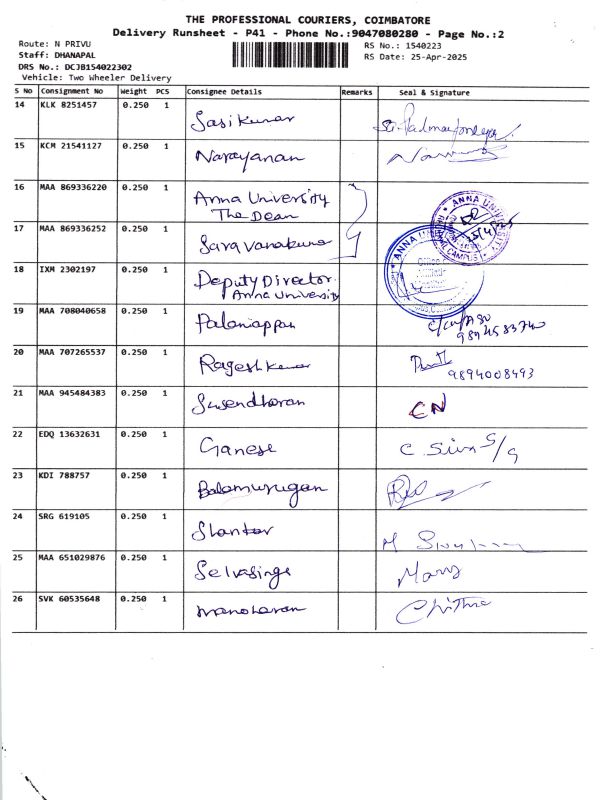 THE PROFESSIONAL COURIERS, COIMBATORE
Delivery Runsheet - P41 - Phone No.:9047080280 - Page No.:2
Route: N PRIVU
Staff: DHANAPAL
DRS No.: DCJB154022302
Vehicle: Two Wheeler Delivery
RS No.: 1540223
RS Date: 25-Apr-2025
S No Consignment No Weight PCS Consignee Details Remarks Seal & Signature
14 KLK 8251457 0.250 1 Sasikumar
15 KCM 21541127 0.250 1 Narayanan
16 MAA 869336220 0.250 1 Anna University
The Dean
17 MAA 869336252 0.250 1 Saravanakumar
18 IXM 2302197 0.250 1 Deputy Director
Anna University
19 MAA 708040658 0.250 1 Palaniappan
9894583740
20 MAA 707265537 0.250 1 Rageshkumar
9894008493
21 MAA 945484383 0.250 1 Susendharan CN
22 EDQ 13632631 0.250 1 Ganese C. Siva
23 KDI 788757 0.250 1 Balamurugan
24 SRG 619105 0.250 1 Shankar
25 MAA 651029876 0.250 1 Selvasinge Mary
26 SVK 60535648 0.250 1 Manoharan Chithra